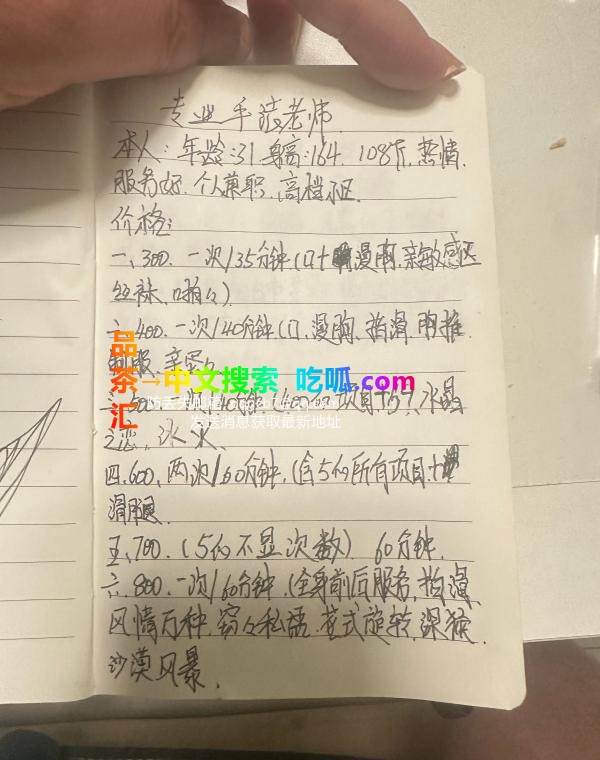 专业手渎老师
本人:年龄:31 身高:164. 108斤, 热情.
服务好. 个人兼职, 高档小区.
价格:
一、300. 一次/35分钟(口+漫胸, 亲敏感区
丝袜, 啪々)
二、400. 一次/40分钟(口、漫胸、指滑、胸推
制服、亲密
品茶汇→中文搜索 吃呱.com
发送消息获取最新地址
之恋, 冰火.
四.600、两次/60分钟, (含5的所有项目+
滑腿.
五、700. (5的不显次数) 60分钟.
六、800. 一次/60分钟(全身前后服务, 指漫
风情万种, 窃々私语, 花式旋转, 深猴.
沙漠风暴.